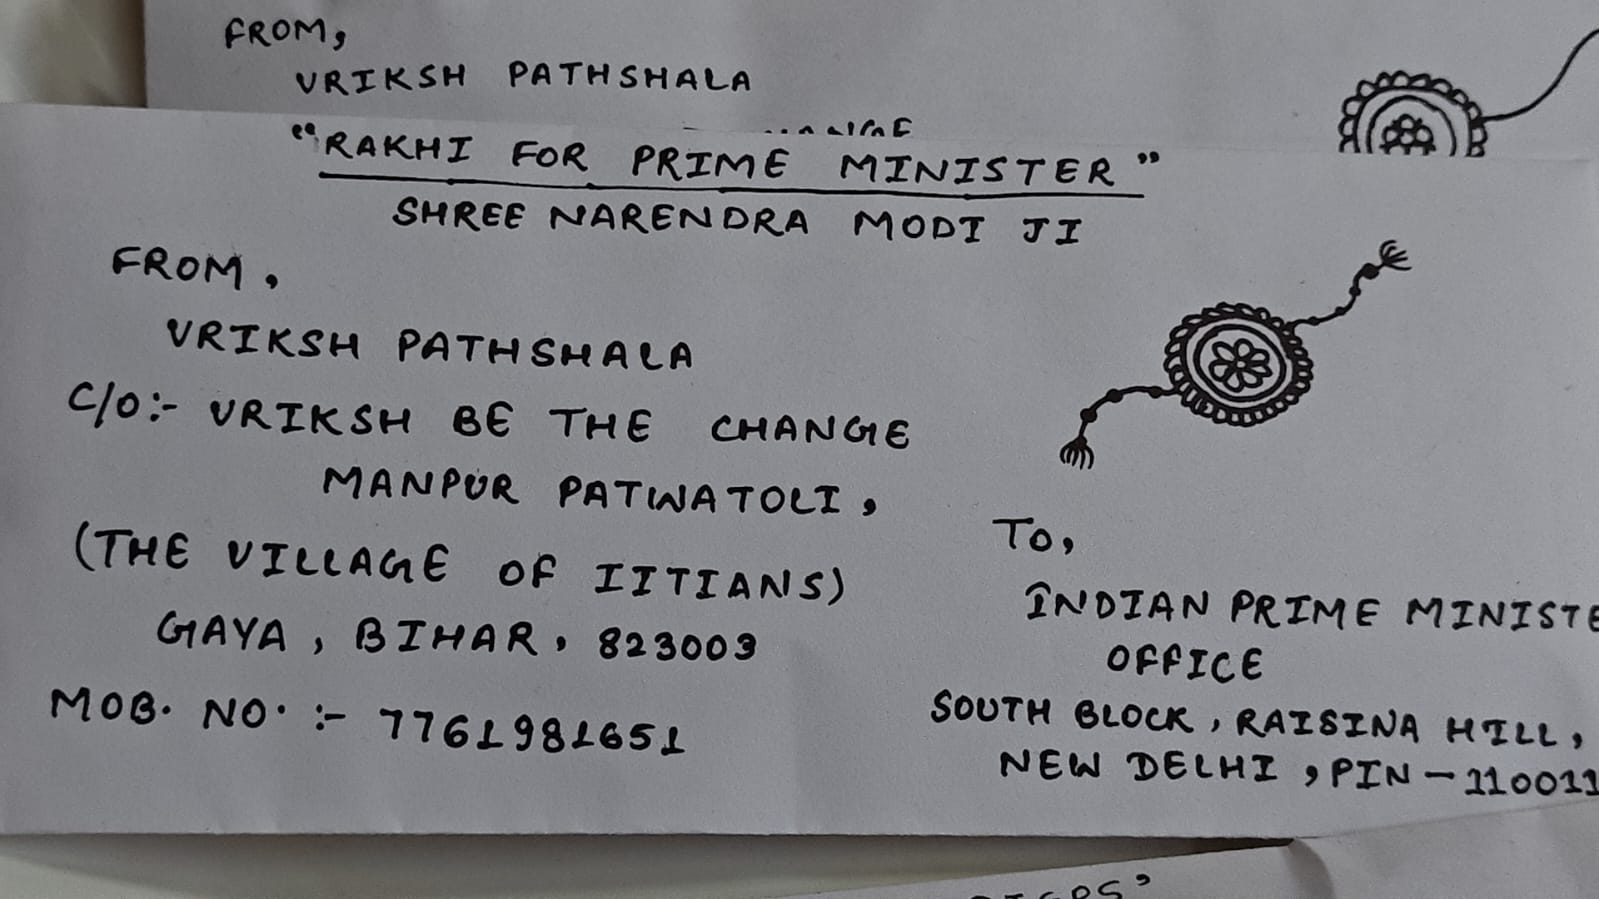 FROM,
VRIKSH PATHSHALA
"RAKHI FOR PRIME MINISTER"
SHREE NARENDRA MODI JI
FROM,
VRIKSH PATHSHALA
C/O:- VRIKSH BE THE CHANGE
MANPUR PATWATOLI,
(THE VILLAGE OF IITIANS)
GAYA, BIHAR, 823003
MOB. NO. :- 7761981651
TO,
INDIAN PRIME MINISTE
OFFICE
SOUTH BLOCK, RAISINA HILL,
NEW DELHI, PIN - 110011